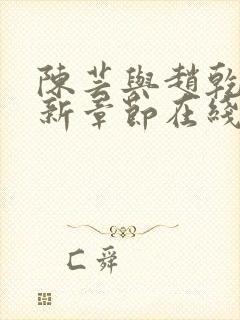 陳芸與趙乾
新章節在綫
C舜